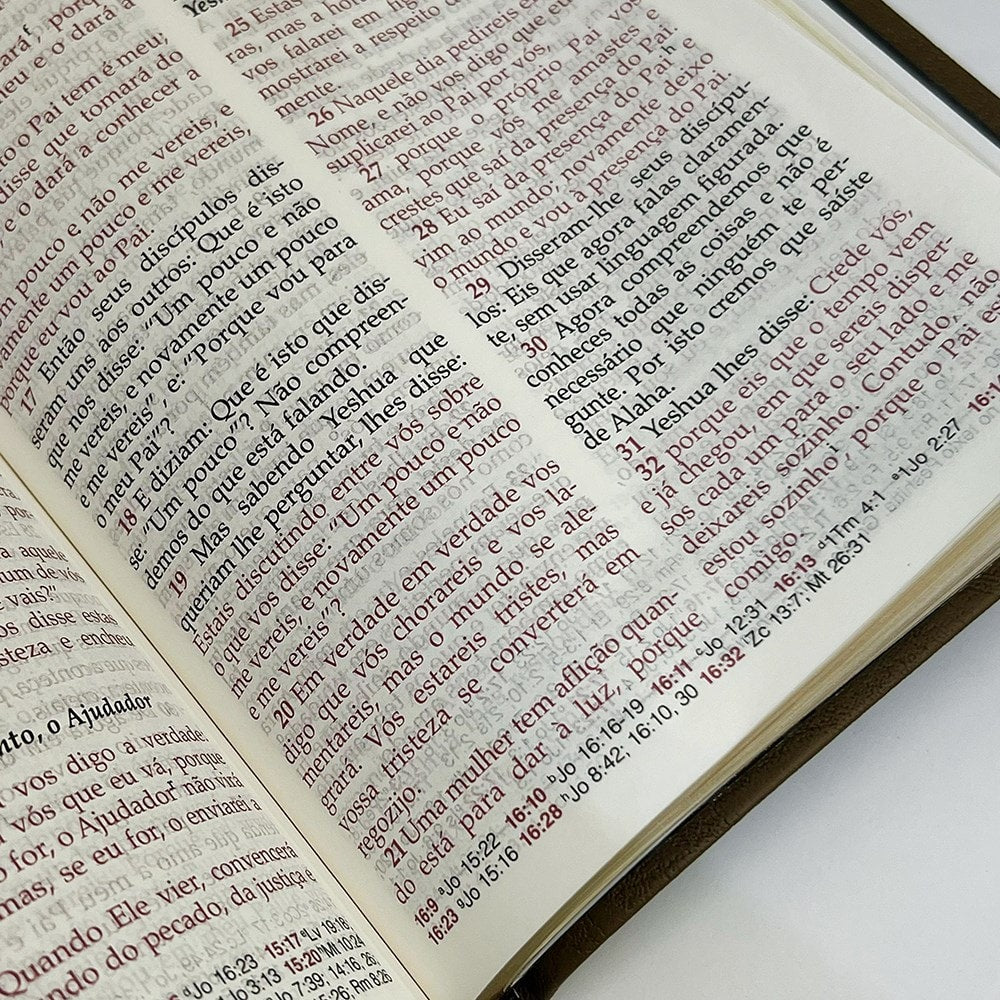 a aquele
num de vós
vais?"
os disse estas
steza, e encheu
nto, o Ajudador
vos digo a verdade:
vós que eu vá, porque
for, o Ajudador não virá
mas, se eu for, o enviarei a
Quando Ele vier, convencerá
ndo do pecado, da justiça e
Jo 16:23 15:17 Lv 19:18;
Jo 3:13 15:20 Mt 10:24
Jo 7:39; 14:16, 26;
15:26; Rm 8:26
o Pai tem é meu;
disse que tomará do
o dará a conhecer a
m pouco e não me vereis, e
amente um pouco e me vereis,
porque eu vou ao Pai.
17 Então seus discípulos dis-
seram uns aos outros: Que é isto
que nos disse: "Um pouco e não
me vereis, e novamente um pouco
e me vereis", e: "Porque vou para
o meu Pai"?
18 E diziam: Que é isto que dis-
se: "Um pouco"? Não compreen-
demos do que está falando.
19 Mas sabendo Yeshua que
queriam lhe perguntar, lhes disse:
Estais discutindo entre vós sobre
o que vos disse: "Um pouco e não
me vereis, e novamente um pouco
e me vereis"?
20 Em verdade em verdade vos
digo que vós chorareis e vos la-
mentareis, mas o mundo se ale-
grará. Vós estareis tristes, mas
vossa tristeza se converterá em
regozijo.
21 Uma mulher tem aflição quan-
do está para dar à luz, porque
25 Estas
ras, mas a hora
vos falarei em
mostrarei a respeito
mente.
26 Naquele dia pedireis em
Nome, e não vos digo que eu
suplicarei ao Pai por vós,
27 porque o próprio Pai vos
ama, porque vós me amastes e
crestes que saí da presença do Pai.
28 Eu saí da presença do Pai e
vim ao mundo, novamente deixo
o mundo e vou à presença do Pai.
29 Disseram-lhe seus discípu-
los: Eis que agora falas claramen-
te, sem usar linguagem figurada.
30 Agora compreendemos que
conheces todas as coisas e não é
necessário que ninguém te per-
gunte. Por isto cremos que saíste
de Alaha.
31 Yeshua lhes disse: Crede vós,
32 porque eis que o tempo vem
e já chegou, em que sereis disper-
sos cada um para o seu lado e me
deixareis sozinho. Contudo, não
estou sozinho, porque o Pai está
comigo.
16:9 Jo 15:22 16:10 Jo 16:16-19 16:11 Jo 12:31 16:13 1Tm 4:1 1Jo 2:27
16:23 Jo 15:16 16:28 Jo 8:42; 16:10, 30 16:32 Zc 13:7; Mt 26:31